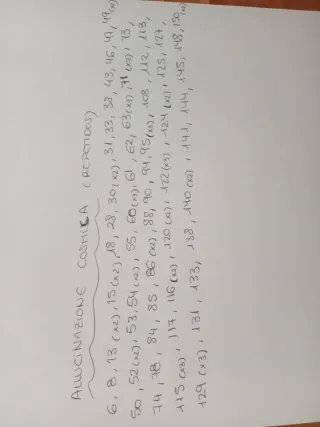 ALLUCINAZIONE COSMICA (REPETIDOS)
6, 8, 13 (x2), 15 (x2), 18, 28, 30 (x2), 31, 33, 38, 43, 46, 47, 49,
50, 52 (x2), 53, 54 (x2), 55, 60, 61, 62, 63 (x2), 71 (x2), 73,
74, 78, 84, 85, 86 (x2), 88, 90, 94, 95 (x3), 108, 112, 113,
115 (x3), 117, 116 (x2), 120 (x2), 122 (x3), 124 (x2), 125, 127,
129 (x3), 131, 133, 138, 140 (x2), 141, 144, 145, 148, 150